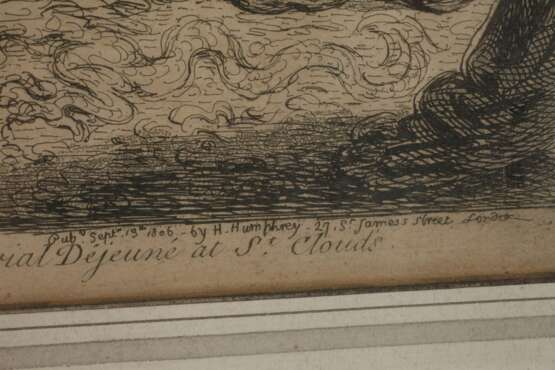 Pub.d Sept.r 19th 1806 - by H. Humphrey - 27. St. James's Street London
rial Déjeuné at St. Clouds